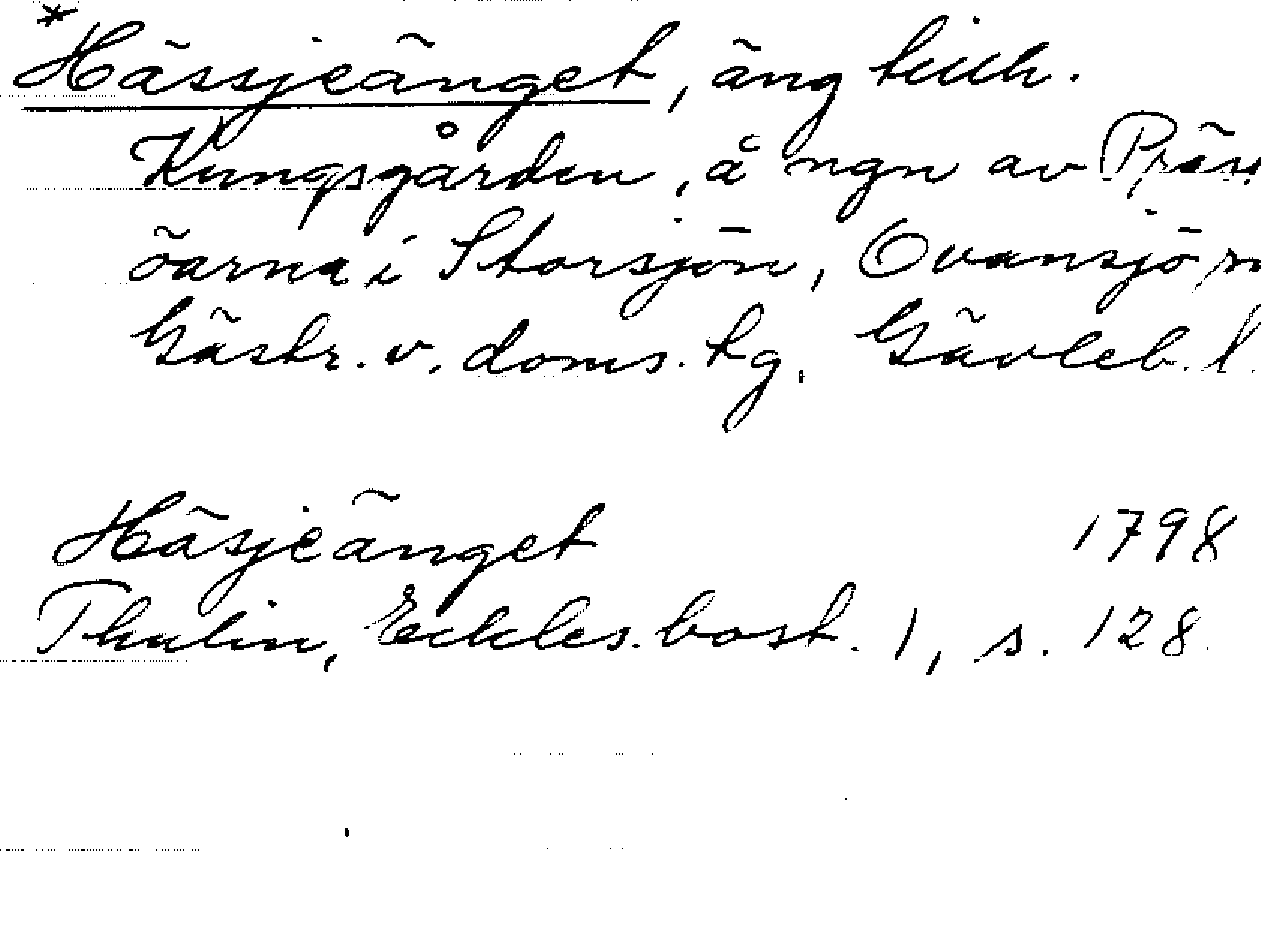 *Hässjeänget, äng tillh.
Kungsgården, å ngn av Präst
öarna i Storsjön, Ovansjö sn
Gästr. v. doms. tg. Gävleb. l.
Häsjeänget 1798
Thulin, Eckles. bost. 1, s. 128.